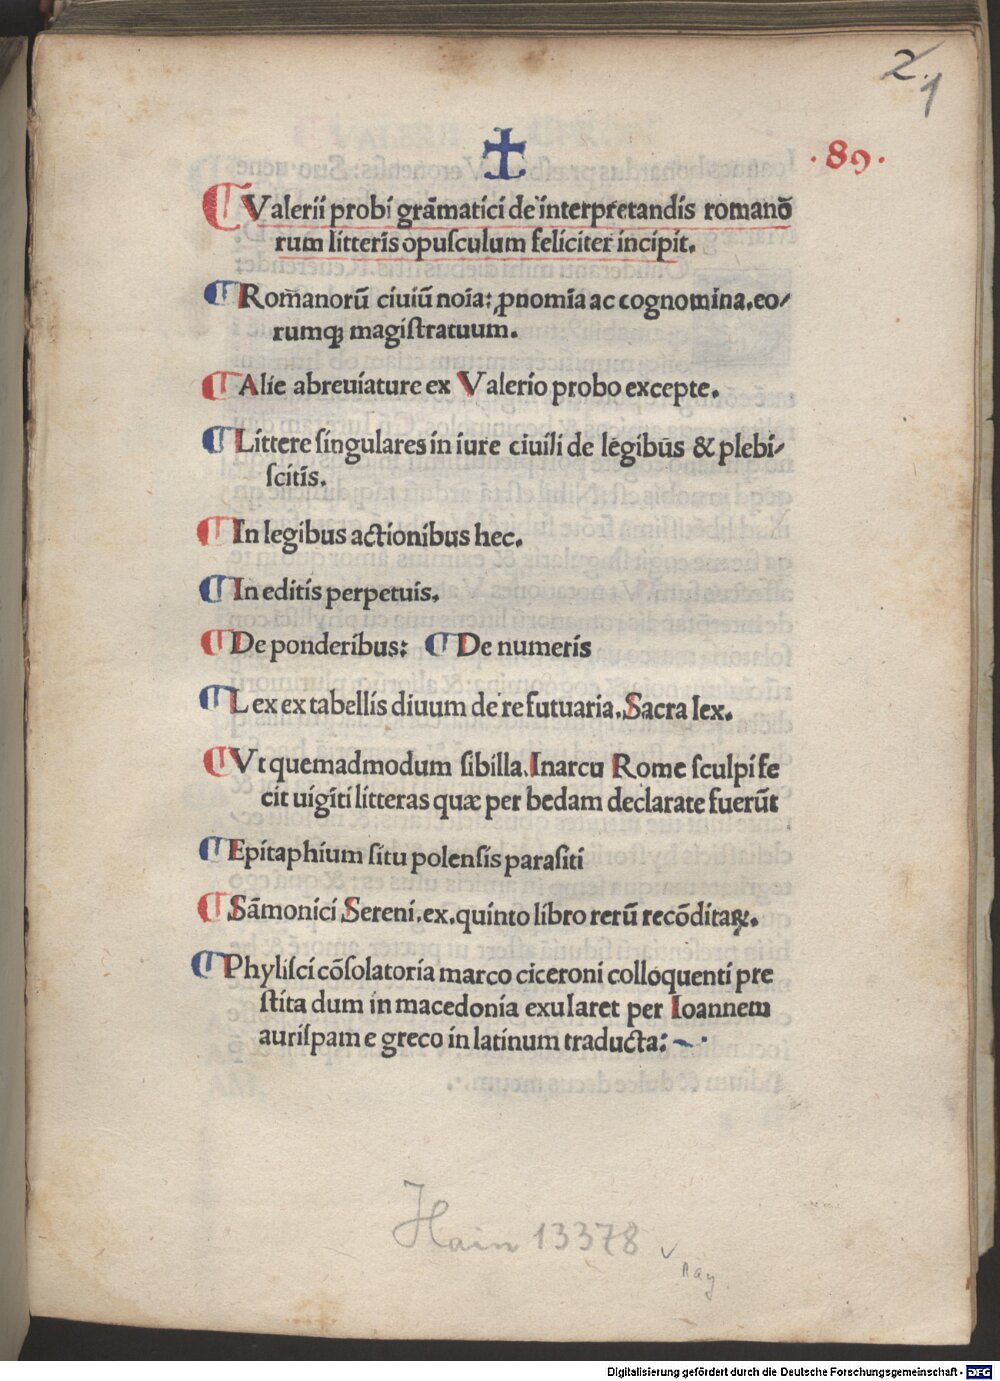 2.
1
·89·
Valerii probi grãmatici de interpretandis romanõ
rum litteris opusculum feliciter incipit.
Romanorũ ciuiũ noĩa: ꝓnomĩa ac cognomina.eo/
rumqꝫ magistratuum.
Alie abreuiature ex Valerio probo excepte.
Littere singulares in iure ciuili de legibus & plebi/
scitis.
In legibus actionibus hec.
In editis perpetuis.
De ponderibus: De numeris
Lex ex tabellis diuum de re futuaria. Sacra lex.
Vt quemadmodum sibilla. In arcu Rome sculpi fe
cit uigĩti litteras quæ per bedam declarate fuerũt
Epitaphium situ polensis parasiti
Sãmonici Sereni.ex.quinto libro rerũ recõditaꝝ.
Phylisci cõsolatoria marco ciceroni colloquenti pre
stita dum in macedonia exularet per Ioannem
aurispam e greco in latinum traducta:
Hain 13378
Digitalisierung gefördert durch die Deutsche Forschungsgemeinschaft - DFG